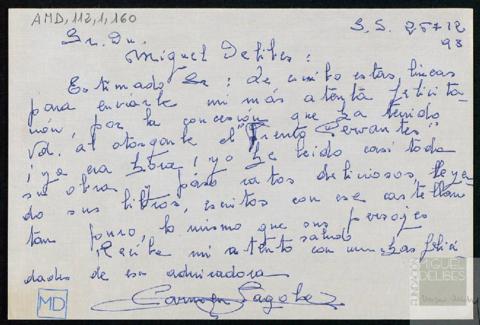 AMD, 112, 1, 160
S. S. 25-12
93
Sr. Dn.
Miguel Delibes:
Estimado Sr: Le escribo estas lineas
para enviarle mi más atenta felicita-
ción, por la concesión que ha tenido
Vd. al otorgarle el "Premio Cervantes"
¡ya era hora! yo he leido casi toda
su obra y paso ratos deliciosos, leyen
do sus libros, escritos con ese castellano
tan puro, lo mismo que sus
Reciba mi atento saludo con muchas felici
dades de esa admiradora
Carmen
MD
FUNDACIÓN
MIGUEL
DELIBES